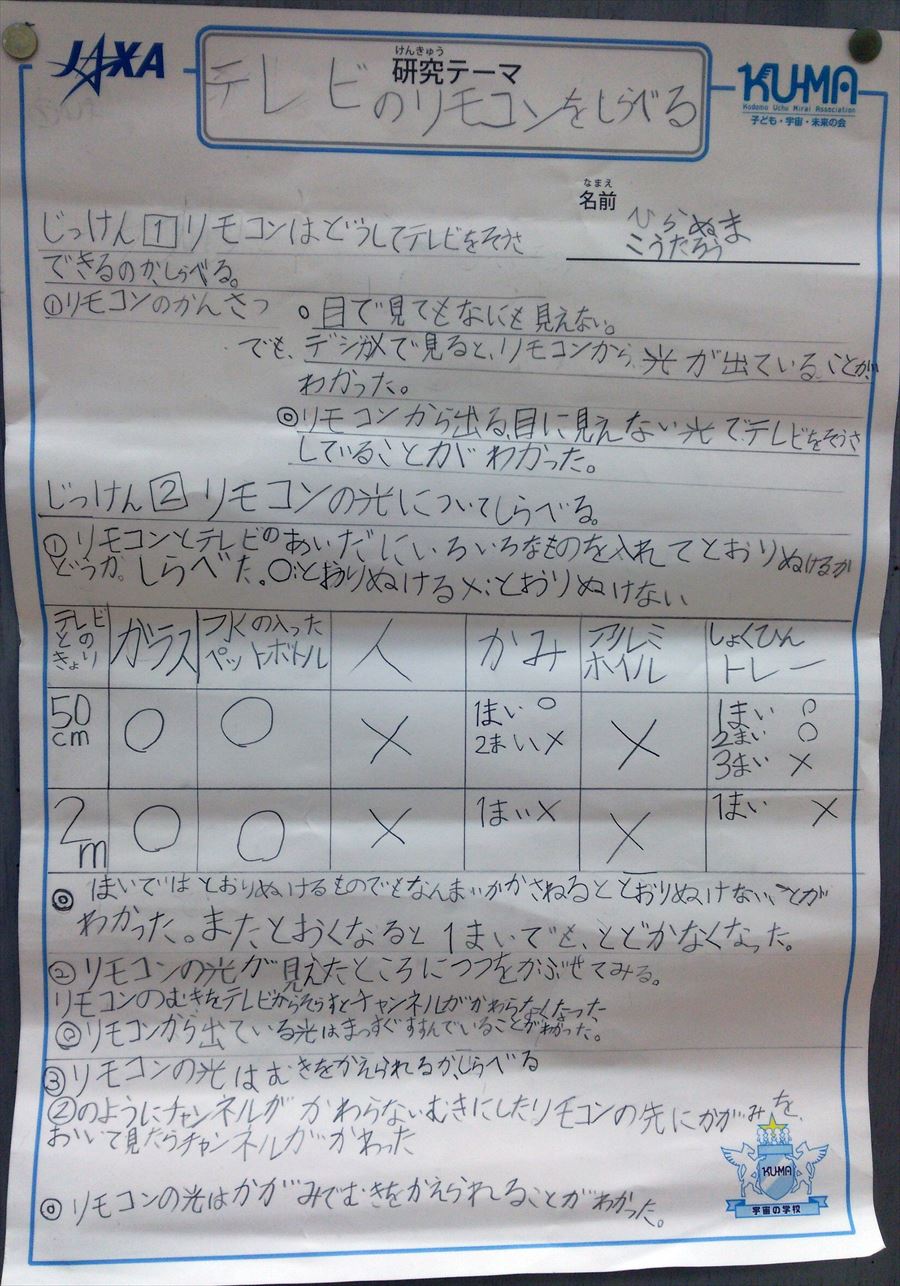 JAXA
けんきゅう
研究テーマ
テレビのリモコンをしらべる
KU-MA
Kodomo Uchu Mirai Association
子ども・宇宙・未来の会
なまえ
名前
ひらぬま
こうたろう
じっけん1 リモコンはどうしてテレビをそうさ
できるのか、しらべる。
①リモコンのかんさつ
○目で見てもなにも見えない。
でも、デジカメで見ると、リモコンから、光が出ていることが、
わかった。
◎リモコンから出る、目に見えない光でテレビをそうさ
していることがわかった。
じっけん2 リモコンの光についてしらべる。
①リモコンとテレビのあいだにいろいろなものを入れてとおりぬけるか
どうか。しらべた。○:とおりぬける×:とおりぬけない
テレビとのきょり ガラス 水の入ったペットボトル 人 かみ アルミホイル しょくひんトレー
50cm ○ ○ × 1まい ○ 2まい × × 1まい ○ 2まい ○ 3まい ×
2m ○ ○ × 1まい × × 1まい ×
◎1まいではとおりぬけるものでもなんまいかかさねるととおりぬけないことが
わかった。またとおくなると1まいでも、とどかなくなった。
②リモコンの光が見えたところにつつをかぶせてみる。
リモコンのむきをテレビからそらすとチャンネルがかわらなくなった
◎リモコンから出ている光はまっすぐすすんでいることがわかった。
③リモコンの光はむきをかえられるか、しらべる
②のようにチャンネルがかわらないむきにしたリモコンの先にかがみを、
おいて見たらチャンネルがかわった
◎リモコンの光はかがみでむきをかえられることがわかった。
KU-MA
宇宙の学校